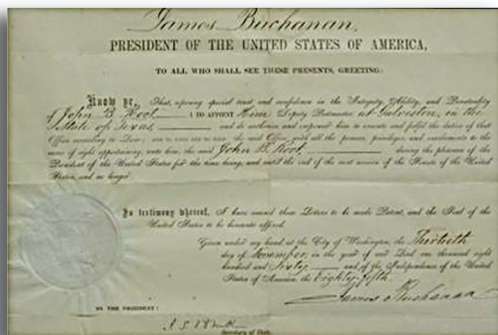 James Buchanan,
PRESIDENT OF THE UNITED STATES OF AMERICA,
TO ALL WHO SHALL SEE THESE PRESENTS, GREETING:
Know ye, That, reposing special trust and confidence in the Integrity, Ability, and Punctuality
of John B. Root I DO APPOINT Him Deputy Postmaster at Galveston, in the
State of Texas, and do authorize and empower him to execute and fulfil the duties of that
Office according to Law; the said Office, with all the powers, privileges, and emoluments to the
same of right appertaining, unto him, the said John B. Root, during the pleasure of the
President of the United States for the time being, and until the end of the next session of the Senate of the United
States, and no longer.
In testimony whereof, I have caused these Letters to be made Patent, and the Seal of the
United States to be hereunto affixed.
Given under my hand, at the City of Washington, the Thirtieth
day of November, in the year of our Lord one thousand eight
hundred and Sixty and of the Independence of the United
States of America, the Eighty-fifth.
James Buchanan
BY THE PRESIDENT:
Secretary of State.